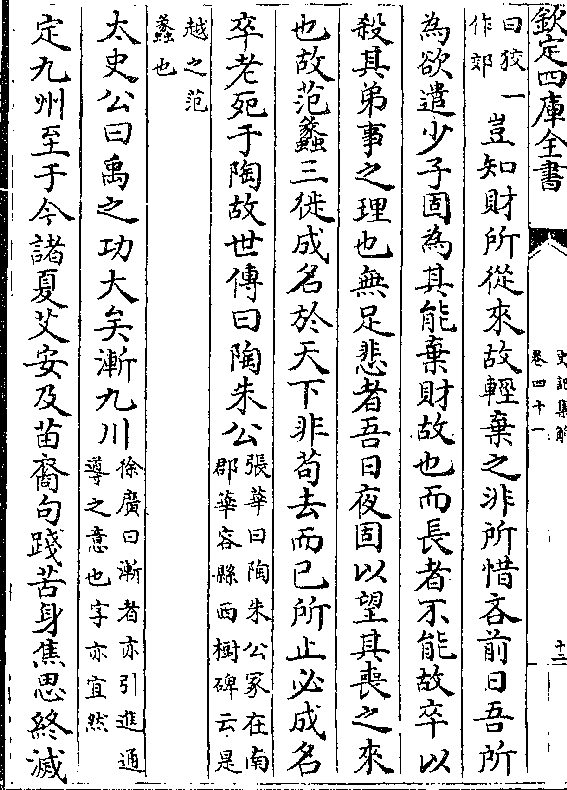 欽定四庫全書
史記集解
卷四十一
十二
曰狡一
作郊
豈知財所從來故輕棄之非所惜吝前日吾所
為欲遣少子固為其能棄財故也而長者不能故卒以
殺其弟事之理也無足悲者吾日夜固以望其喪之來
也故范蠡三徙成名於天下非苟去而已所止必成名
卒老死于陶故世傳曰陶朱公
張華曰陶朱公冢在南
郡華容縣西樹碑云是
越之范
蠡也
太史公曰禹之功大矣漸九川
徐廣曰漸者亦引進通
導之意也字亦宜然
定九州至于今諸夏艾安及苗裔句踐苦身焦思終滅